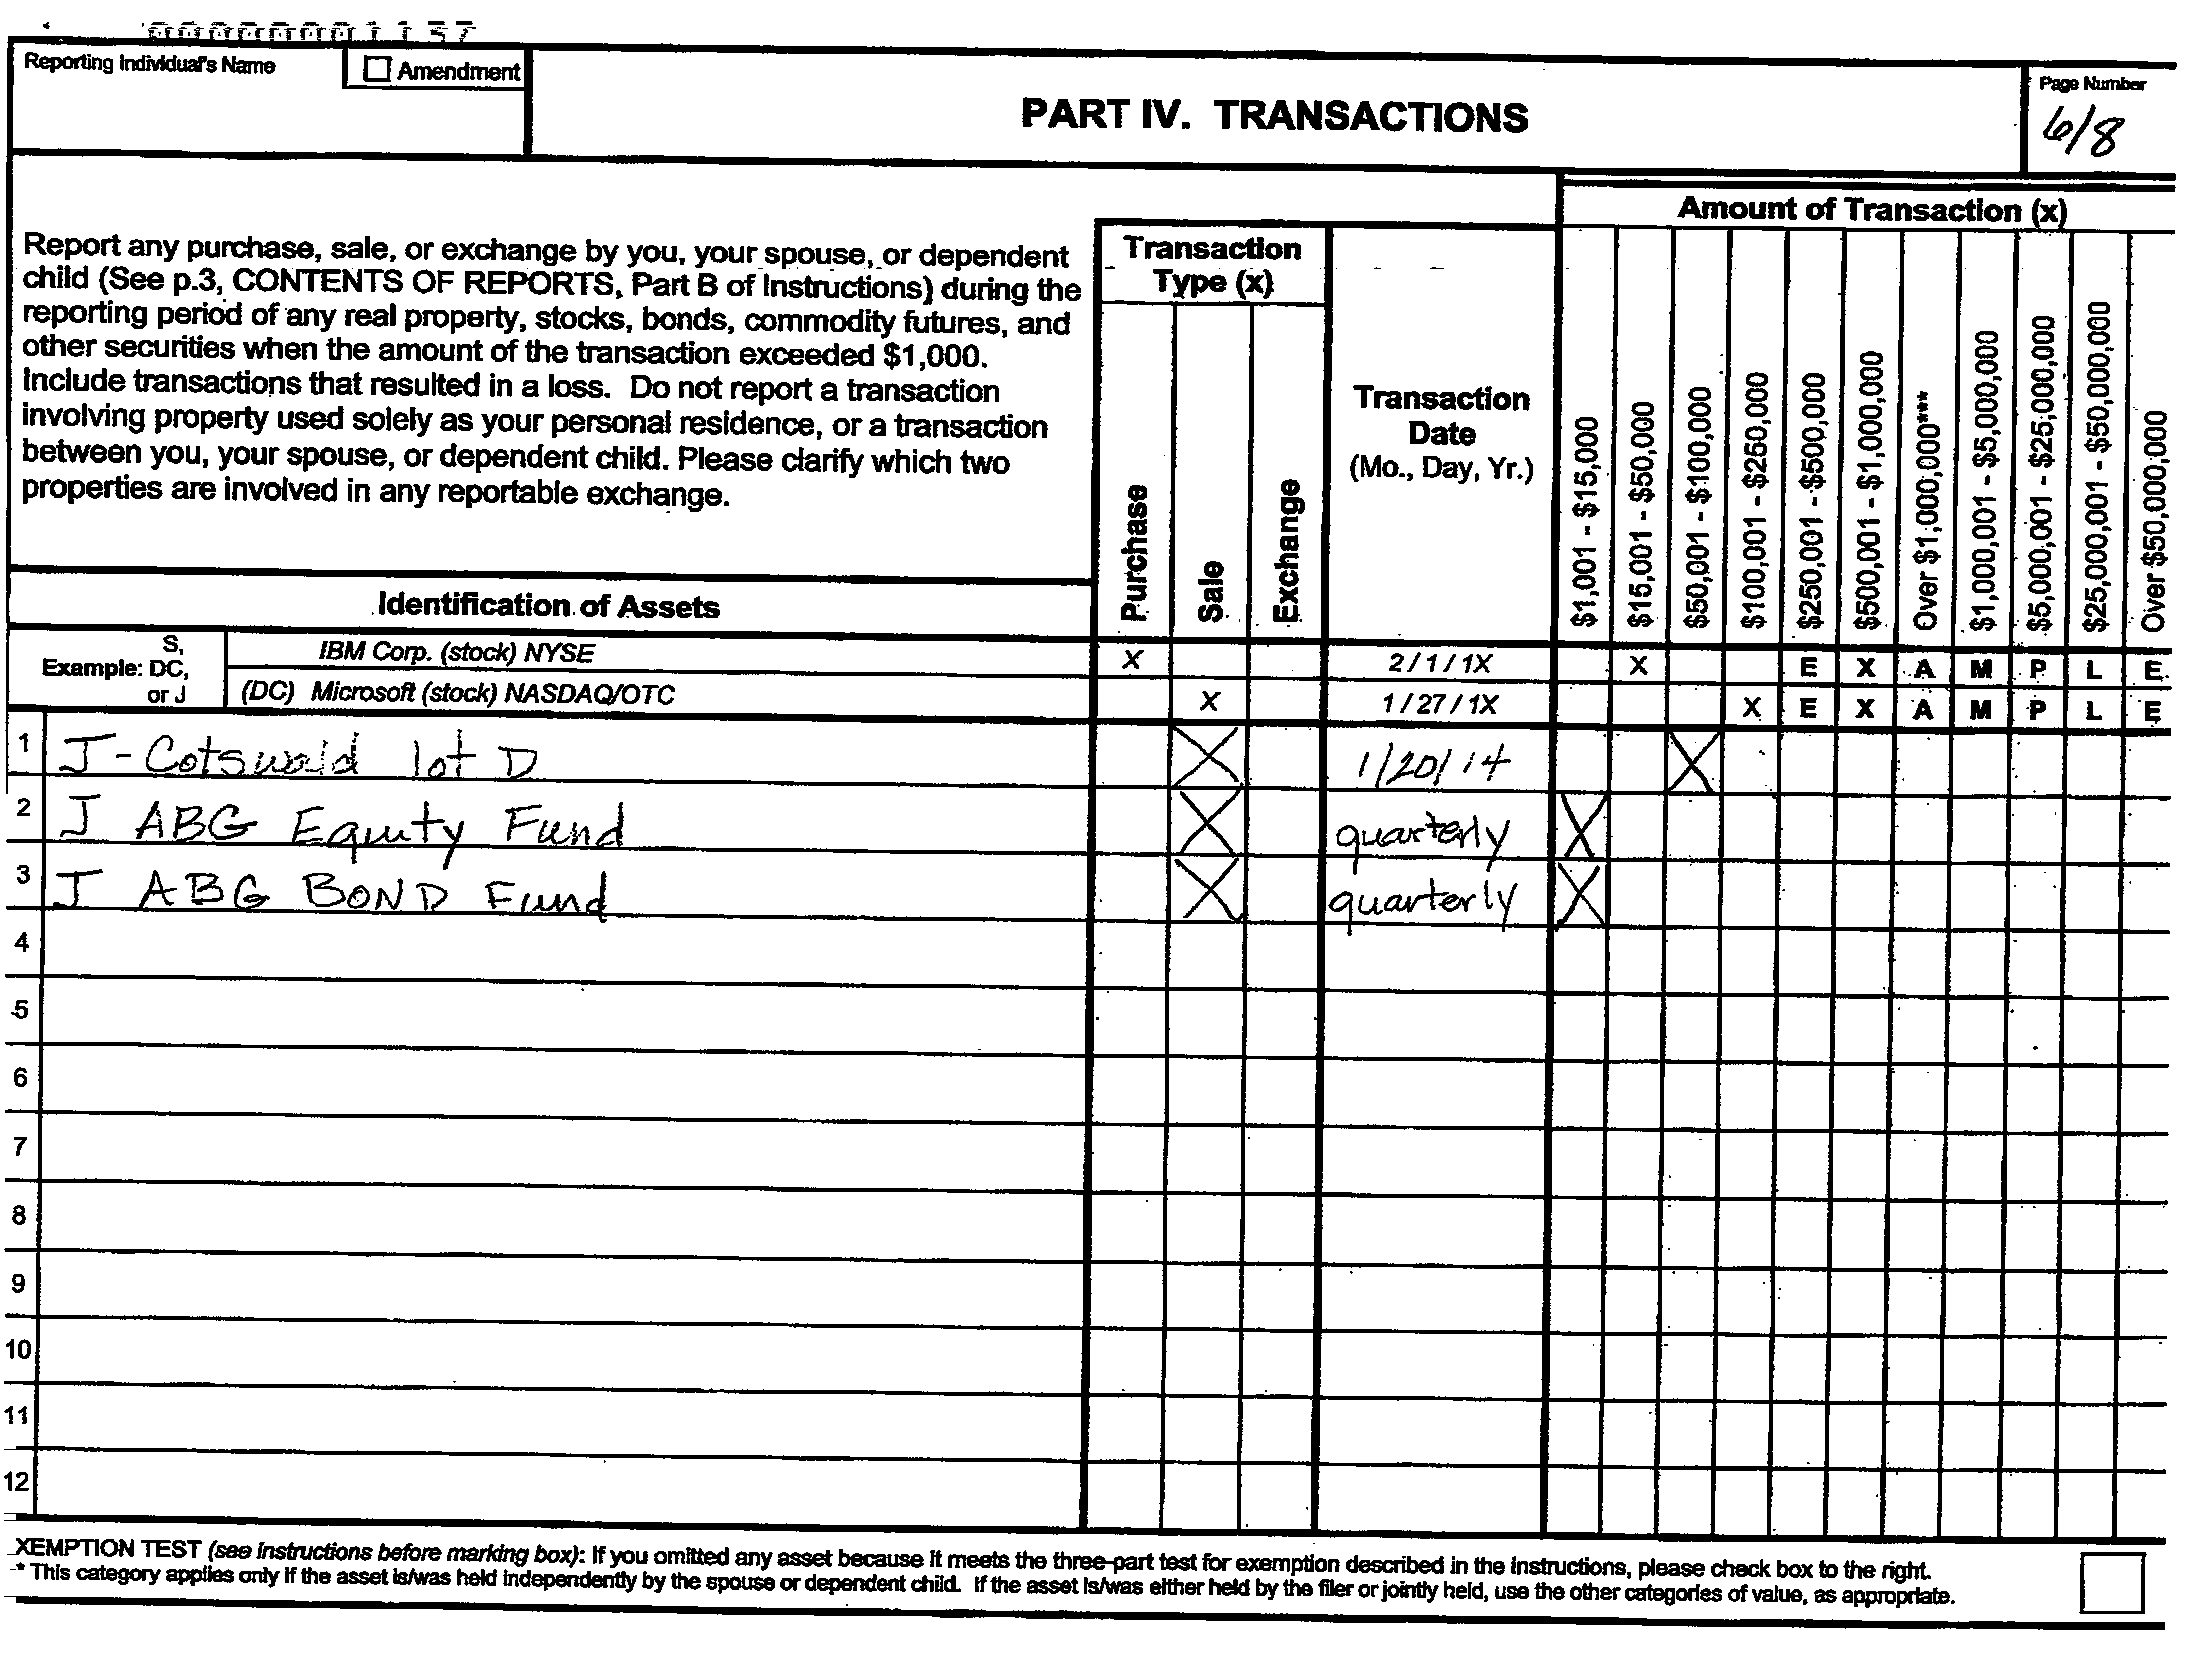 000000001137
Reporting Individual's Name
Amendment
PART IV. TRANSACTIONS
Page Number
6/8
Amount of Transaction (x)
Report any purchase, sale, or exchange by you, your spouse, or dependent
child (See p.3, CONTENTS OF REPORTS, Part B of Instructions) during the
reporting period of any real property, stocks, bonds, commodity futures, and
other securities when the amount of the transaction exceeded $1,000.
Include transactions that resulted in a loss. Do not report a transaction
involving property used solely as your personal residence, or a transaction
between you, your spouse, or dependent child. Please clarify which two
properties are involved in any reportable exchange.
Transaction
Type (x)
Purchase
Sale
Exchange
Transaction
Date
(Mo., Day, Yr.)
$1,001 - $15,000
$15,001 - $50,000
$50,001 - $100,000
$100,001 - $250,000
$250,001 - $500,000
$500,001 - $1,000,000
Over $1,000,000***
$1,000,001 - $5,000,000
$5,000,001 - $25,000,000
$25,000,001 - $50,000,000
Over $50,000,000
Identification of Assets
Example: S, DC, or J
IBM Corp. (stock) NYSE X 2/1/1X X E X A M P L E
(DC) Microsoft (stock) NASDAQ/OTC X 1/27/1X X E X A M P L E
1 J-Cotswald lot D X 1/20/14 X
2 J ABG Equity Fund X quarterly X
3 J ABG BOND Fund X quarterly X
4
5
6
7
8
9
10
11
12
XEMPTION TEST (see instructions before marking box): If you omitted any asset because it meets the three-part test for exemption described in the instructions, please check box to the right.
* This category applies only if the asset is/was held independently by the spouse or dependent child. If the asset is/was either held by the filer or jointly held, use the other categories of value, as appropriate.